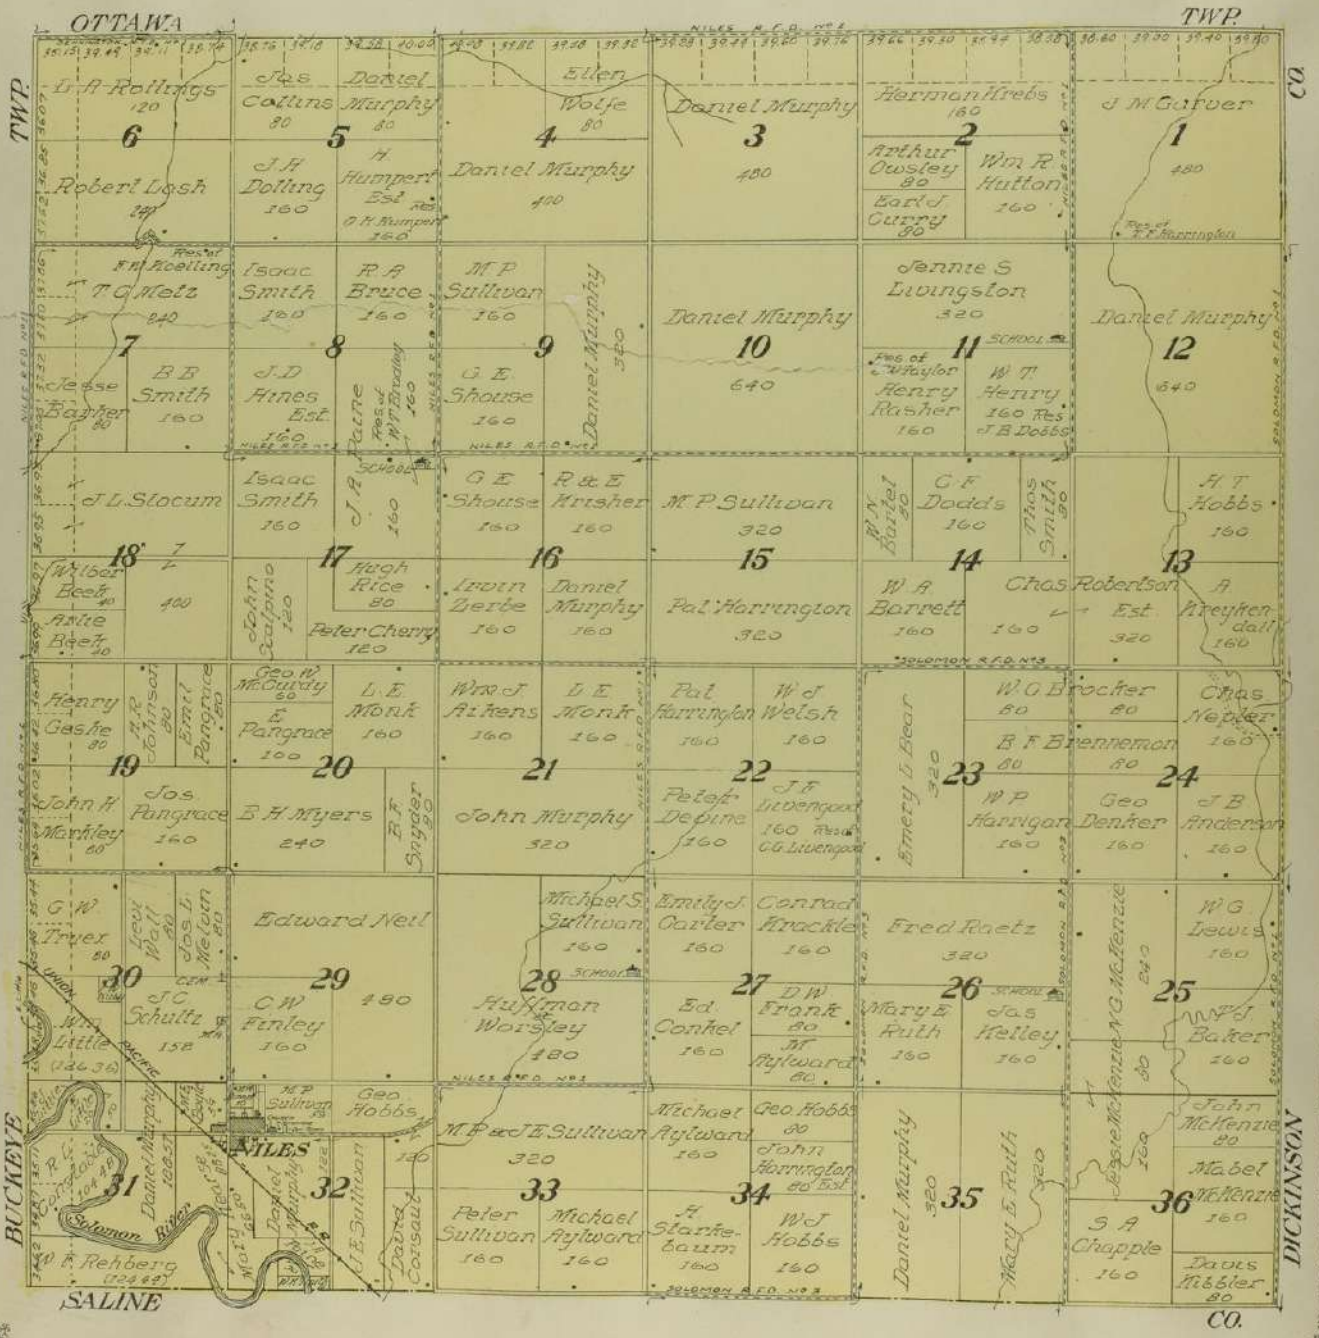 OTTAWA
TWP.
NILES R.F.D. No 2
TWP.
CO.
38.76 39.18
39.66 39.30
38.80 39.00 39.40 39.80
L A Rollings
120
6
Robert Lash
240
Jas
Collins
80
Daniel
Murphy
80
5
J.A
Dolling
160
H.
Humpert
Est
Res
O.H. Humpert
160
Ellen
Wolfe
80
4
Daniel Murphy
400
Daniel Murphy
3
480
Herman Krebs
160
2
Arthur
Owsley
80
Earl J.
Curry
80
Wm R
Hutton
160
J M Garver
1
480
Res. of
F.F. Harrington
Res of
F.W. Koelling
T C Metz
240
7
Jesse
Barker
80
B B
Smith
160
Isaac
Smith
160
R A
Bruce
160
8
J.D
Hines
Est.
160
J A Paine
160
Res of
W T Bradley
160
NILES R.F.D. No 1
SCHOOL
M P
Sullivan
160
Daniel Murphy
320
9
G. E.
Shouse
160
NILES R.F.D. No 1
Daniel Murphy
10
640
Jennie S
Livingston
320
11
SCHOOL
Res. of
J W Taylor
Henry
Rasher
160
W T.
Henry
160 Res
J B Dobbs
Daniel Murphy
12
640
SOLOMON R.F.D. No 1
J L Slocum
18
400
Wilber
Beek
40
Artie
Beek
40
Isaac
Smith
160
17
John
Scalpino
120
Hugh
Rice
80
Peter Cherry
120
G E
Shouse
160
R & E
Krisher
160
16
Irvin
Zerbe
160
Daniel
Murphy
160
M. P. Sullivan
320
15
Pat Harrington
320
W N
Bartel
80
C F
Dodds
160
Thos
Smith
80
14
W A
Barrett
160
160
SOLOMON R.F.D. No 3
H. T
Hobbs
160
13
Chas. Robertson
Est.
320
A
Kreyken-
dall
160
Henry
Geske
80
H.R.
Johnson
80
Emil
Pangrace
80
19
John H
Markley
80
Jos.
Pangrace
160
Geo. W
McCurdy
60
E
Pangrace
100
L. E
Monk
160
20
B. H. Myers
240
B. F.
Snyder
80
Wm J
Aikens
160
L E
Monk
160
21
John Murphy
320
Pat
Harrington
160
W J
Welsh
160
22
Peter
Devine
160
J F
Livengood
160 Res of
C.G. Livengood
Emery L Bear
320
23
W. O Brocker
80
80
B F Brennemon
80
80
W P
Harrigan
160
Chas
Nepler
160
24
Geo
Denker
160
J B
Anderson
160
G W.
Tryer
80
Levi
Wall
80
Jos L.
Melvin
80
CEM
30
Wm
Little
(126.36)
J C
Schultz
158
UNION
PACIFIC
Edward Neil
29
480
C W
Finley
160
Michael S.
Sullivan
160
28
SCHOOL
Huffman
&
Worsley
480
NILES R.F.D. No 1
Emily J.
Carter
160
Conrad
Krackle
160
27
Ed.
Conkel
160
D W
Frank
80
M
Aylward
80
Fred Raetz
320
26
SCHOOL
Mary E
Ruth
160
Jas
Kelley
160
SOLOMON R.F.D. No 3
N G McKenzie
240
W G
Lewis
160
25
P J.
Baker
160
Jessie McKenzie
80
160
BUCKEYE
R. L.
Constable
104.48
31
Daniel Murphy
Solomon River
W F. Rehberg
(124.44)
M P
Sullivan
Geo
Hobbs
120
NILES
Daniel
Murphy
32
J E Sullivan
David
Consaul
M P & J E Sullivan
320
33
Peter
Sullivan
160
Michael
Aylward
160
Michael
Aylward
160
Geo. Hobbs
80
John
Harrington
80 Est
34
H.
Starke-
baum
160
W J
Hobbs
160
SOLOMON R.F.D. No 3
Daniel Murphy
320
35
Mary E Ruth
320
John
McKenzie
80
Mabel
McKenzie
160
36
S A
Chapple
160
Davis
Kibbler
80
DICKINSON
SALINE
CO.